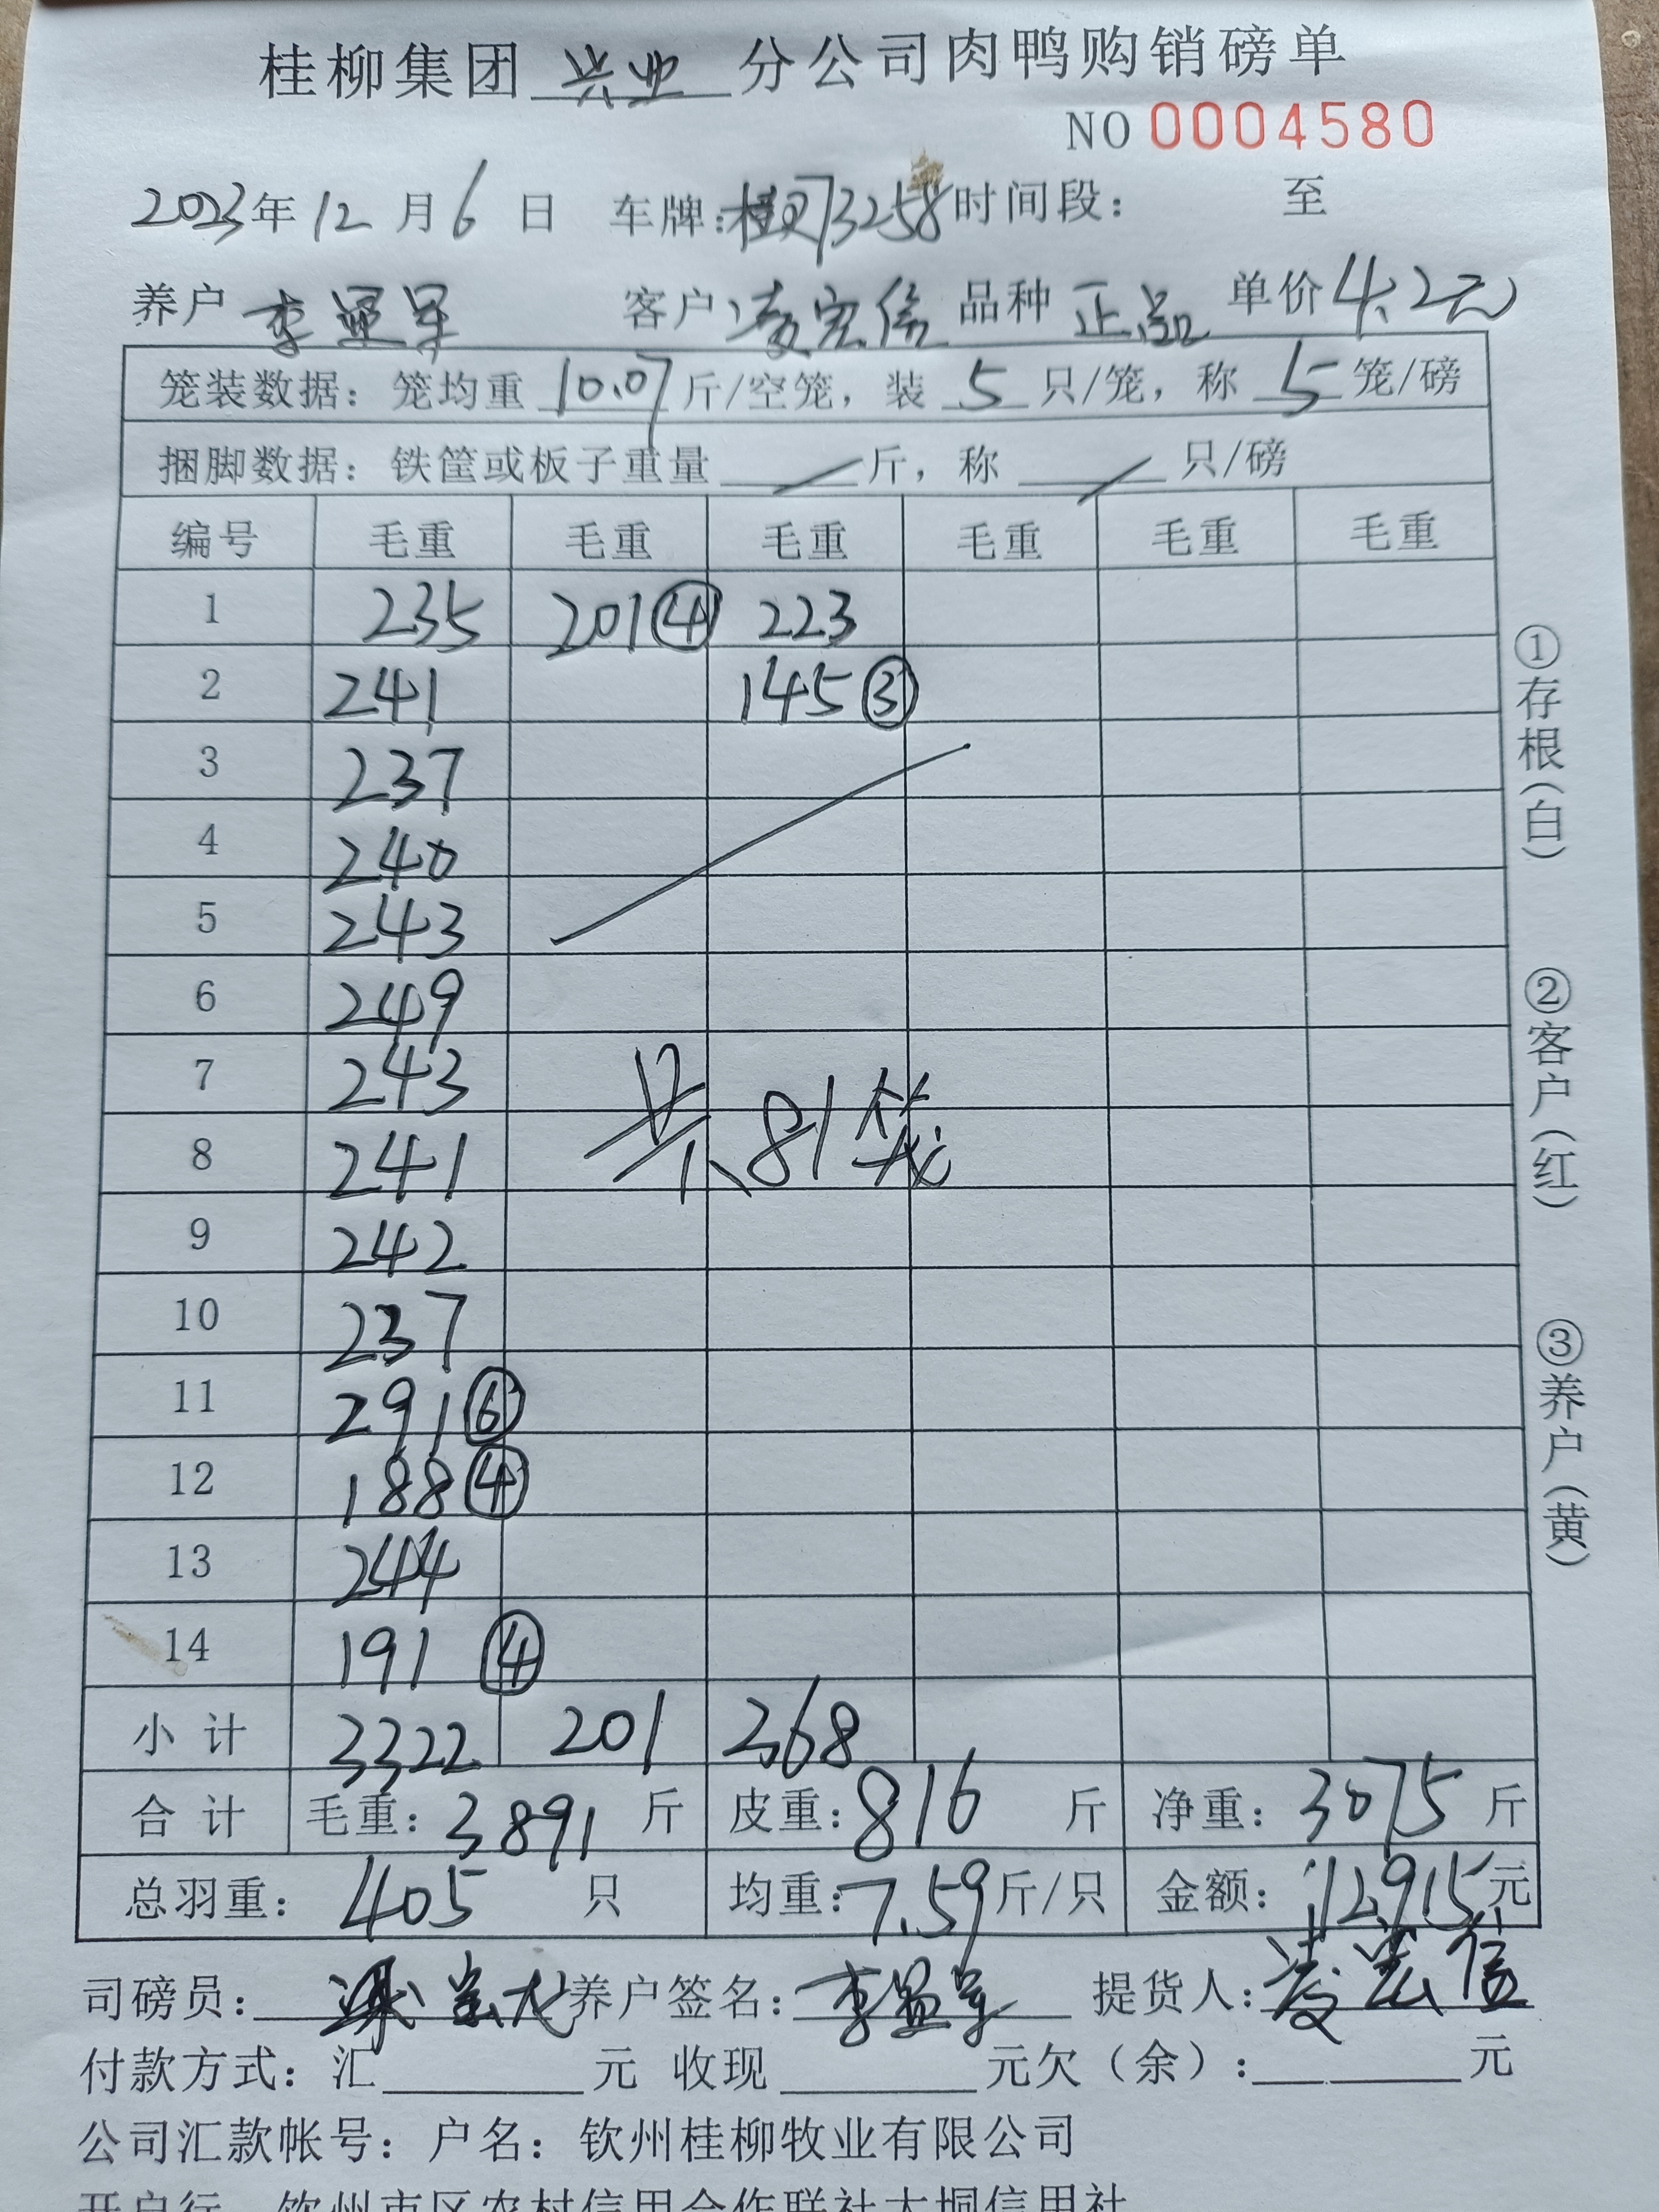 桂柳集团 兴业 分公司肉鸭购销磅单
NO 0004580
2023年12月6日 车牌：桂 73258 时间段： 至
养户 李 军 客户 凌宏信 品种 正品 单价 4.2元
笼装数据：笼均重 10.07 斤/空笼，装 5 只/笼，称 5 笼/磅
捆脚数据：铁筐或板子重量 / 斤，称 / 只/磅
编号 毛重 毛重 毛重 毛重 毛重 毛重
1 235 201④ 223
2 241 145③
3 237
4 240
5 243
6 249
7 243
8 241
共81笼
9 242
10 237
11 291⑥
12 188④
13 244
14 191④
小计 3322 201 368
合计 毛重：3891 斤 皮重：816 斤 净重：3075 斤
总羽重：405 只 均重：7.59 斤/只 金额：12915元
司磅员： 养户签名：李 军 提货人：凌宏信
付款方式：汇 元 收现 元欠（余）： 元
公司汇款帐号：户名：钦州桂柳牧业有限公司
开户行 钦州市区农村信用合作联社大垌信用社
①存根（白）
②客户（红）
③养户（黄）